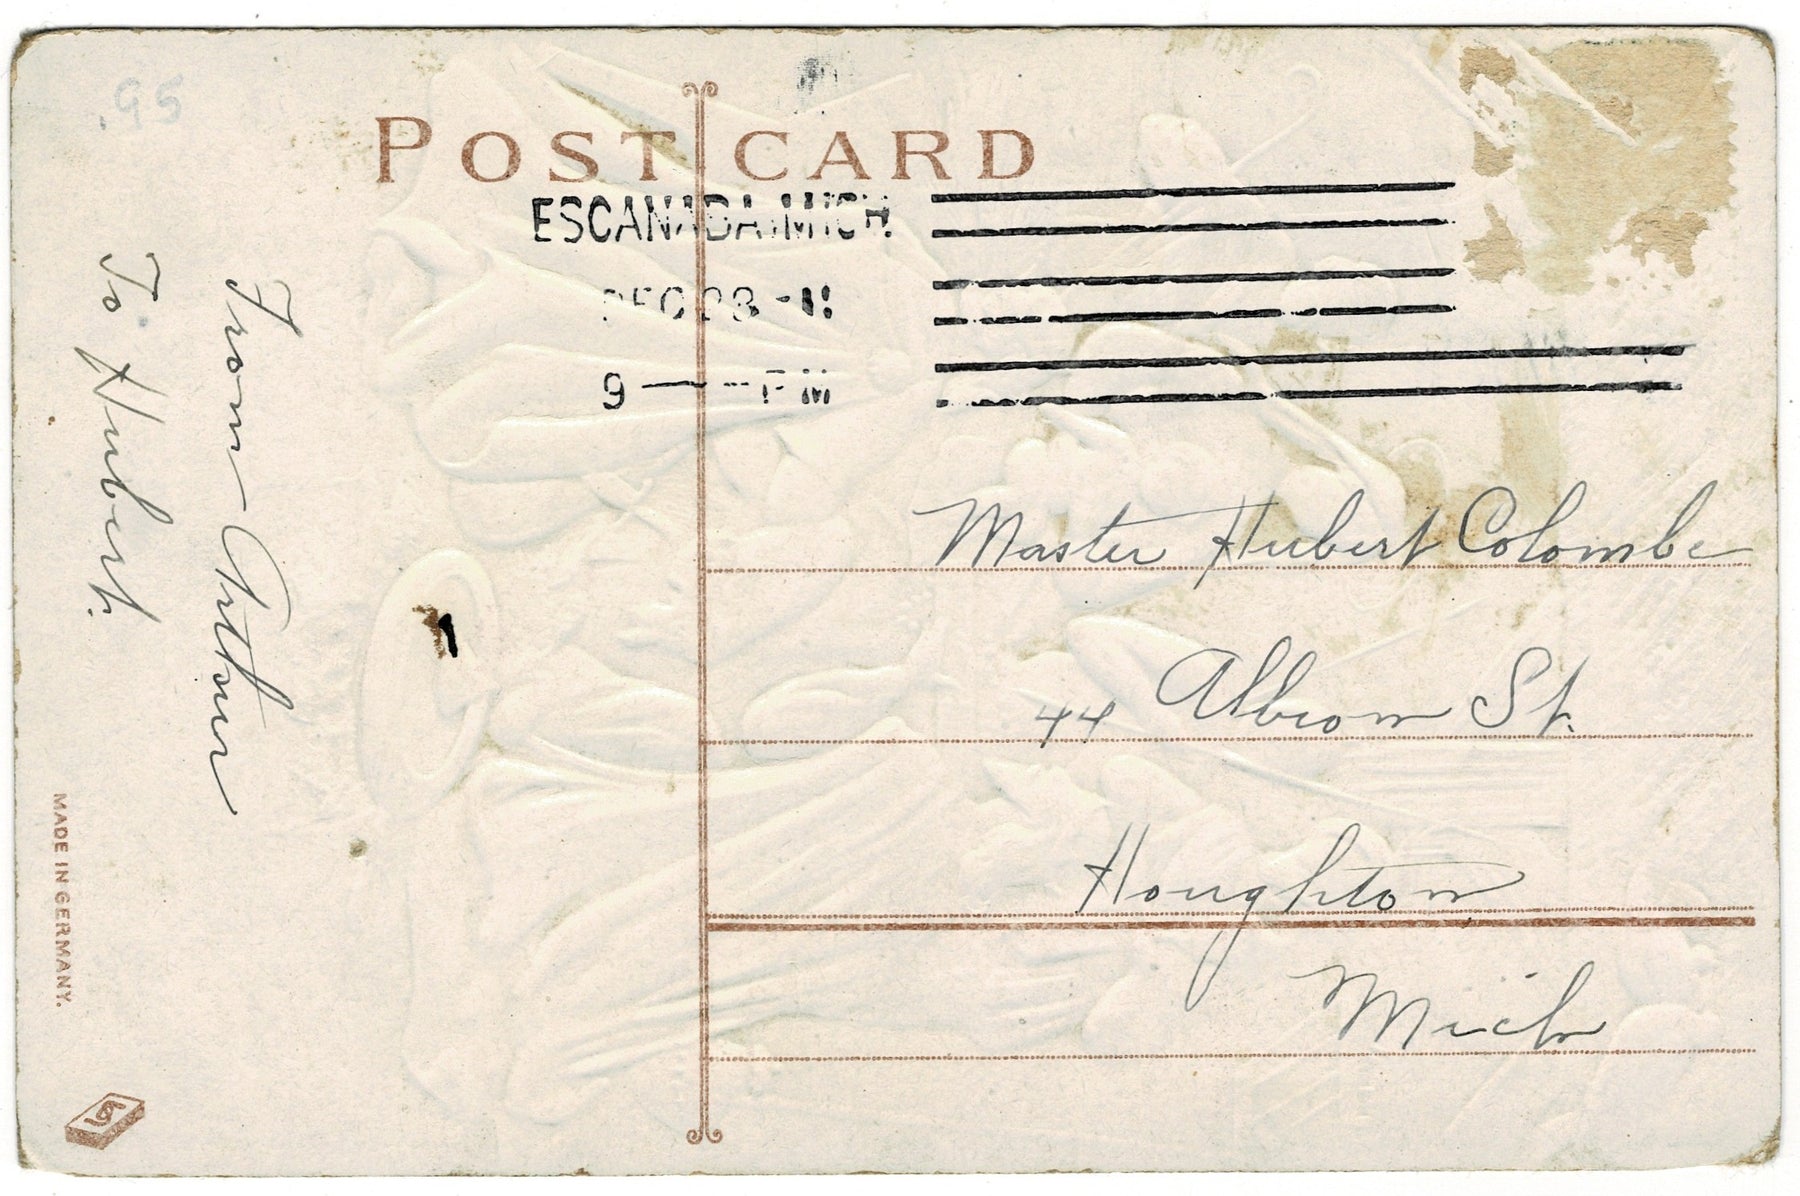 .95
POST CARD
ESCANABA, MICH.
DEC 28 - 11
9 — PM
To Hubert.
From Arthur
Master Hubert Colombe
44 Albion St.
Houghton
Mich
MADE IN GERMANY.